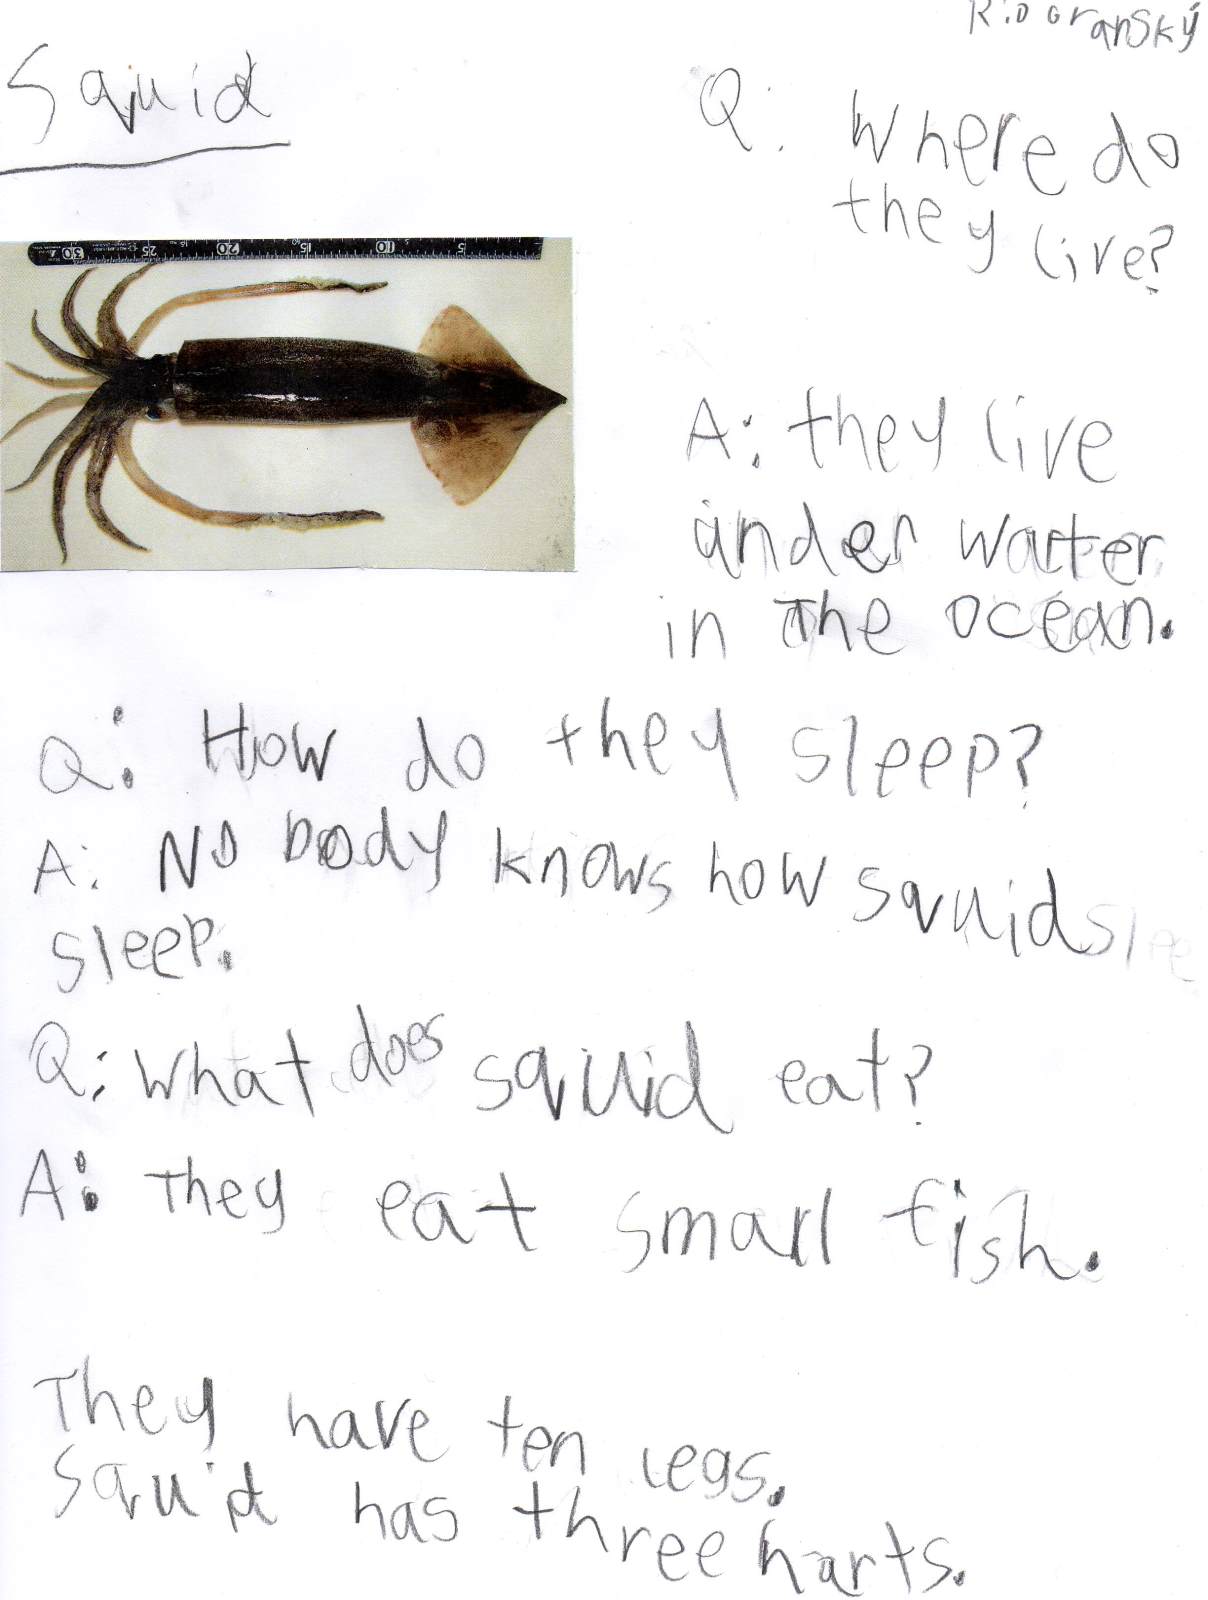 Rio Gransky
Squid
Q: Where do
they live?
30 25 20 15 10 5
A: they live
under watter
in the ocean.
Q: How do they sleep?
A: No body knows how squids slee
sleep.
Q: What does squid eat?
A: They eat small fish.
They have ten legs.
Squid has three harts.